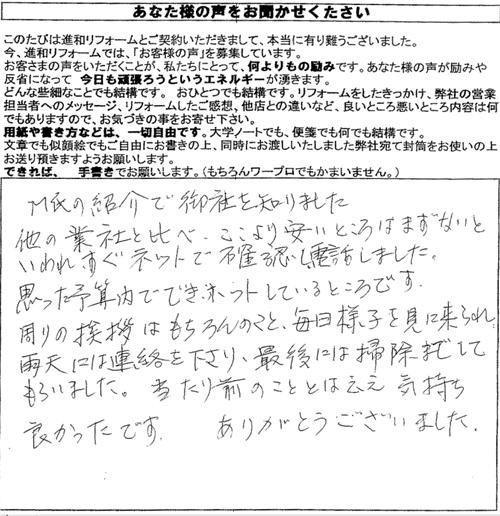 あなた様の声をお聞かせください
このたびは進和リフォームとご契約いただきまして、本当に有り難うございました。
今、進和リフォームでは、「お客様の声」を募集しています。
お客さまの声をいただくことが、私たちにとって、何よりもの励みです。あなた様の声が励みや
反省になって 今日も頑張ろうというエネルギーが湧きます。
どんな些細なことでも結構です。おひとつでも結構です。リフォームをしたきっかけ、弊社の営業
担当者へのメッセージ、リフォームしたご感想、他店との違いなど、良いところ悪いところ内容は何
でもありますので、お気づきの事をお寄せ下さい。
用紙や書き方などは、一切自由です。大学ノートでも、便箋でも何でも結構です。
文章でも似顔絵でもご自由にお書きの上、同時にお渡しいたしました弊社宛て封筒をお使いの上
お送り頂きますようお願いします。
できれば、 手書きでお願いします。(もちろんワープロでもかまいません。)
M氏の紹介で御社を知りました
他の業社と比べ、ここより安いところはまずないと
いわれ、すぐネットで確認し電話しました。
思った予算内ででき、ホットしているところです。
周りの挨拶はもちろんのこと、毎日様子を見に来られ
雨天には連絡を下さり、最後には掃除までして
もらいました。当たり前のこととは云え 気持ち
良かったです。 ありがとうございました。